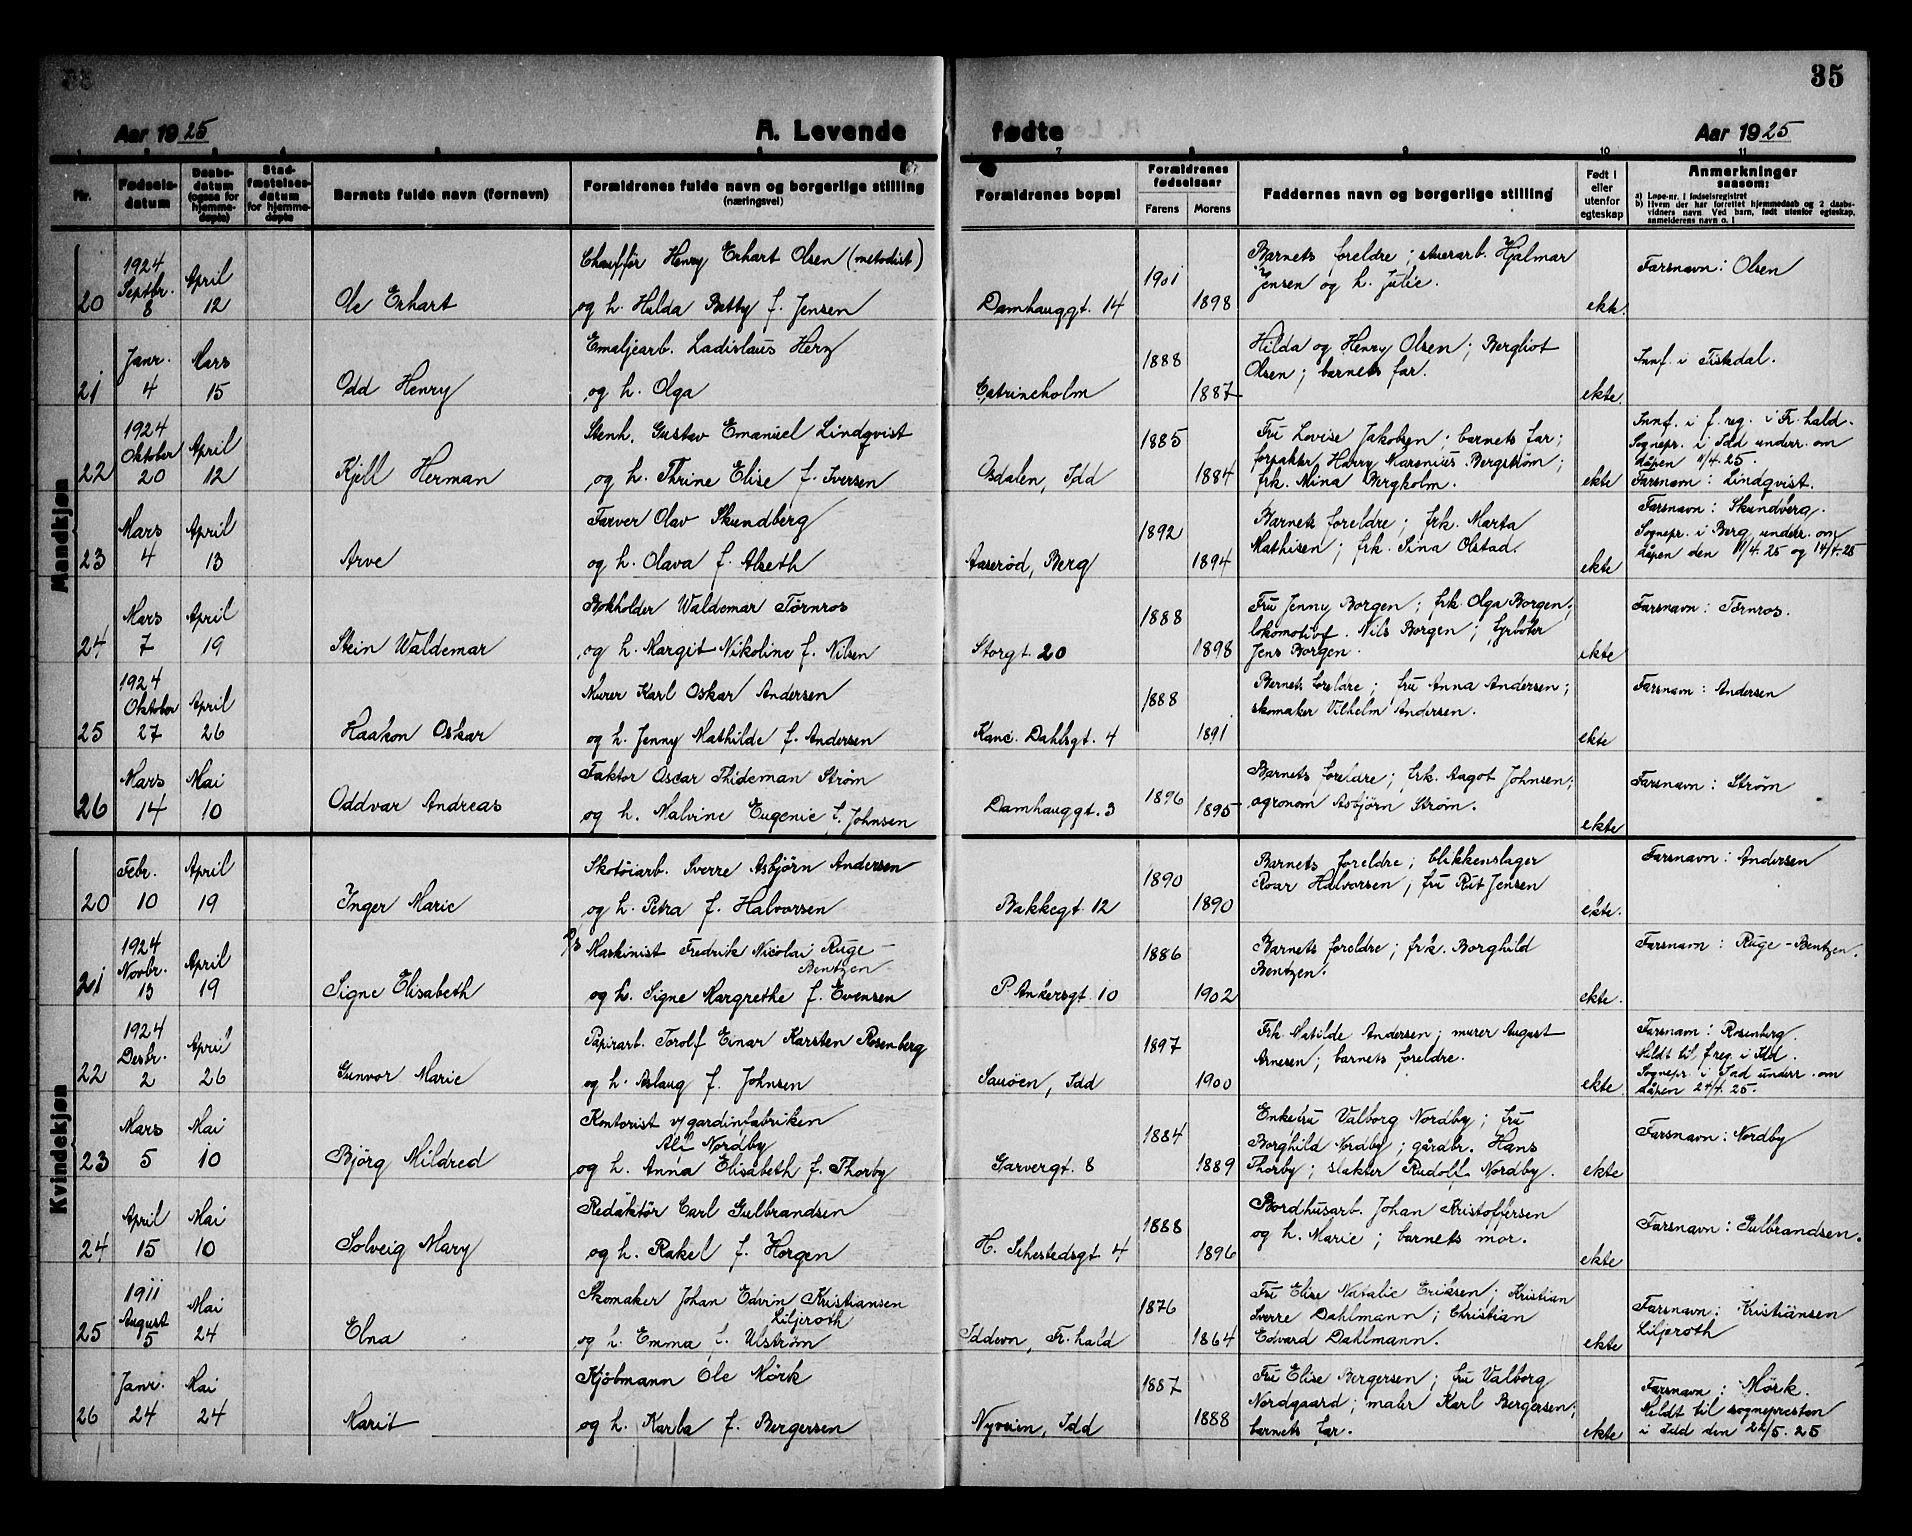 35
Aar 1925 A. Levende fødte Aar 1925
Nr. Fødsels-datum Daabs-datum (ogsaa for hjemme-døpte) Stad-fæstelses-datum for hjemme-døpte Barnets fulde navn (fornavn) Forældrenes fulde navn og borgerlige stilling (næringsvei) Forældrenes bopæl Forældrenes fødselsaar Farens Morens Faddernes navn og borgerlige stilling Født i eller utenfor egteskap Anmerkninger saasom:
a) Løpe-nr. i fødselsregistret
b) Hvem der har forrettet hjemmedaab og 2 daabs-
vidners navn. Ved barn, født utenfor egteskap,
anmelderens navn o. l
Mandkjøn
1924 Chauffør Henry Erhart Olsen (metodist) Barnets foreldre; skierarb. Hjalmar
Septbr. April 1901 Jensen og h. Julie. Farsnavn: Olsen
20 8 12 Ole Erhart og h. Hilda Betty f. Jensen Damhauggt. 14 1898 ekte.
Janr. Mars Emaljearb. Ladislaus Herz 1888 Hilda og Henry Olsen; Bergliot Innf. i Tistedal.
Olsen; barnets far.
21 4 15 Odd Henry og h. Olga Catrineholm 1887 ekte.
1924 Stenh. Gustav Emanuel Lindqvist 1885 Fru Lovise Jakobsen; barnets far; Innf. i f. reg. i Fr.hald.
Oktober April forpakter Harry Marenius Bergstrøm; Sognepr. i Idd underr. om
dåpen 11/4.25.
22 20 12 Kjell Herman og h. Thrine Elise f. Iversen Osdalen, Idd 1884 frk. Mina Bergholm. ekte Farsnavn: Lindqvist.
Mars April Farver Olav Skundberg 1892 Barnets foreldre; frk. Marta Farsnavn: Skundberg.
Mathisen; frk. Sina Olstad. Sognepr. i Berg underr. om
23 4 13 Arve og h. Olava f. Alseth Aaserød, Berg 1894 ekte dåpen den 11/4.25 og 14/4.25
Mars April Bokholder Waldemar Törnros 1888 Fru Jenny Borgen; frk. Olga Borgen; Farsnavn: Törnros.
lokomotivf. Nils Borgen; fyrbøter
24 7 19 Stein Waldemar og h. Margit Nikoline f. Nilsen Storgt. 20 1898 Jens Borgen. ekte
1924 Murer Karl Oskar Andersen 1888 Barnets foreldre; fru Anna Andersen; Farsnavn: Andersen
Oktober April skomaker Vilhelm Andersen.
25 27 26 Haakon Oskar og h. Jenny Mathilde f. Andersen Kanc. Dahlsgt. 4 1891 ekte
Mars Mai Faktor Oscar Thideman Strøm 1896 Barnets foreldre; frk. Aagot Johnsen; Farsnavn: Strøm
26 14 10 Oddvar Andreas og h. Malvine Eugenie f. Johnsen Damhauggt. 3 1895 agronom Asbjørn Strøm. ekte
Kvindekjøn
Febr. April Skotøiarb. Sverre Asbjørn Andersen 1890 Barnets foreldre; blikkenslager Farsnavn: Andersen
Roar Halvorsen; fru Rut Jensen
20 10 19 Inger Marie og h. Petra f. Halvorsen Bakkegt. 12 1890 ekte.
1924 D/s Maskinist Fredrik Nicolai Ruge- 1886 Barnets foreldre; frk. Borghild Farsnavn: Ruge-Bentzen.
Novbr. April Bentzen Bentzen.
21 13 19 Signe Elisabeth og h. Signe Margrethe f. Evensen P. Ankersgt. 10 1902 ekte.
1924 Papirarb. Torolf Einar Karsten Rosenberg 1897 Frk. Matilde Andersen; murer August Farsnavn: Rosenberg.
Desbr. April Arnesen; barnets foreldre. Meldt til f.reg. i Idd.
Sognepr. i Idd underr. om
22 2 26 Gunvor Marie og h. Aslaug f. Johnsen Sauøen, Idd 1900 ekte dåpen 24/4.25.
Mars Mai Kontorist v/gardinfabriken 1884 Enkefru Valborg Nordby; fru Farsnavn: Nordby
Alf Nordby Borghild Nordby; gårdbr. Hans
23 5 10 Bjørg Mildred og h. Anna Elisabeth f. Thorby Garvergt. 8 1889 Thorby; slakter Rudolf Nordby. ekte
April Mai Redaktør Carl Gulbrandsen 1888 Bordhusarb. Johan Kristoffersen Farsnavn: Gulbrandsen.
24 15 10 Solveig Mary og h. Rakel f. Horgen H. Sehestedsgt. 4 1896 og h. Marie; barnets mor. ekte
1911 Skomaker Johan Edvin Kristiansen 1876 Fru Elise Natalie Eriksen; Kristian Farsnavn: Kristiansen
August Mai Liljeroth Sverre Dahlmann; Christian Liljeroth
25 5 24 Elna og h. Emma f. Ulstrøm Iddevn, Fr.hald 1864 Edvard Dahlmann. ekte
Janr. Mai Kjøbmann Ole Mörk 1887 Fru Elise Bergersen; fru Valborg Farsnavn: Mörk.
Nordgaard; maler Karl Bergersen; Meldt til sognepresten
26 24 24 Marit og h. Karla f. Bergersen Nyveien, Idd 1888 barnets far. ekte i Idd den 22/5.25